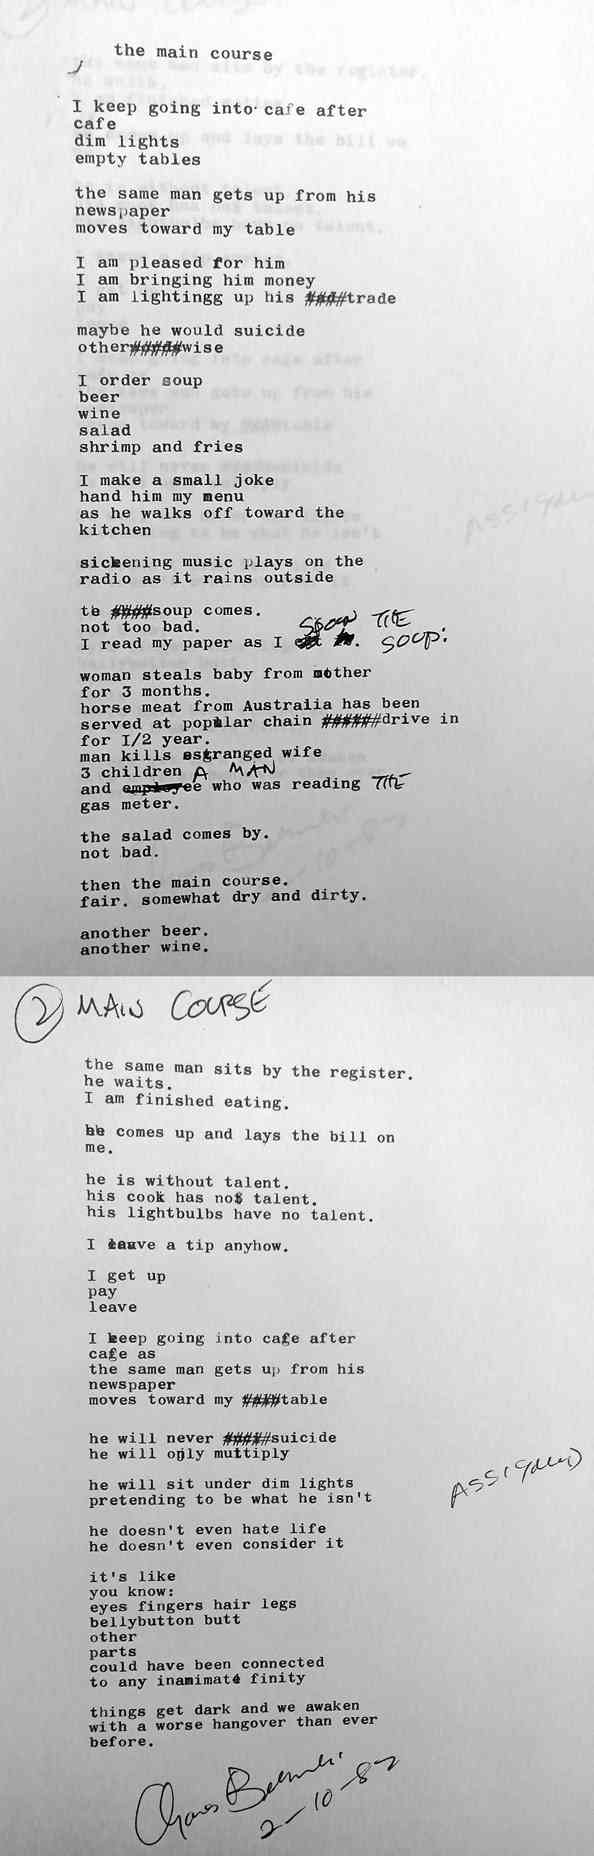 the main course
I keep going into cafe after
cafe
dim lights
empty tables
the same man gets up from his
newspaper
moves toward my table
I am pleased for him
I am bringing him money
I am lightingg up his ####trade
maybe he would suicide
other#####wise
I order soup
beer
wine
salad
shrimp and fries
I make a small joke
hand him my menu
as he walks off toward the
kitchen
sickening music plays on the
radio as it rains outside
te ####soup comes.
not too bad.
I read my paper as I SPOON THE SOUP:
woman steals baby from mother
for 3 months.
horse meat from Australia has been
served at popular chain ######drive in
for 1/2 year.
man kills estranged wife
3 children
and A MAN who was reading THE
gas meter.
the salad comes by.
not bad.
then the main course.
fair. somewhat dry and dirty.
another beer.
another wine.
2 MAIN COURSE
the same man sits by the register.
he waits.
I am finished eating.
he comes up and lays the bill on
me.
he is without talent.
his cook has no talent.
his lightbulbs have no talent.
I leave a tip anyhow.
I get up
pay
leave
I keep going into cafe after
cafe as
the same man gets up from his
newspaper
moves toward my ####table
he will never #####suicide
he will only multiply
he will sit under dim lights
pretending to be what he isn't
he doesn't even hate life
he doesn't even consider it
ASSIGNED
it's like
you know:
eyes fingers hair legs
bellybutton butt
other
parts
could have been connected
to any inanimate finity
things get dark and we awaken
with a worse hangover than ever
before.
Charles Bukowski
2-10-82